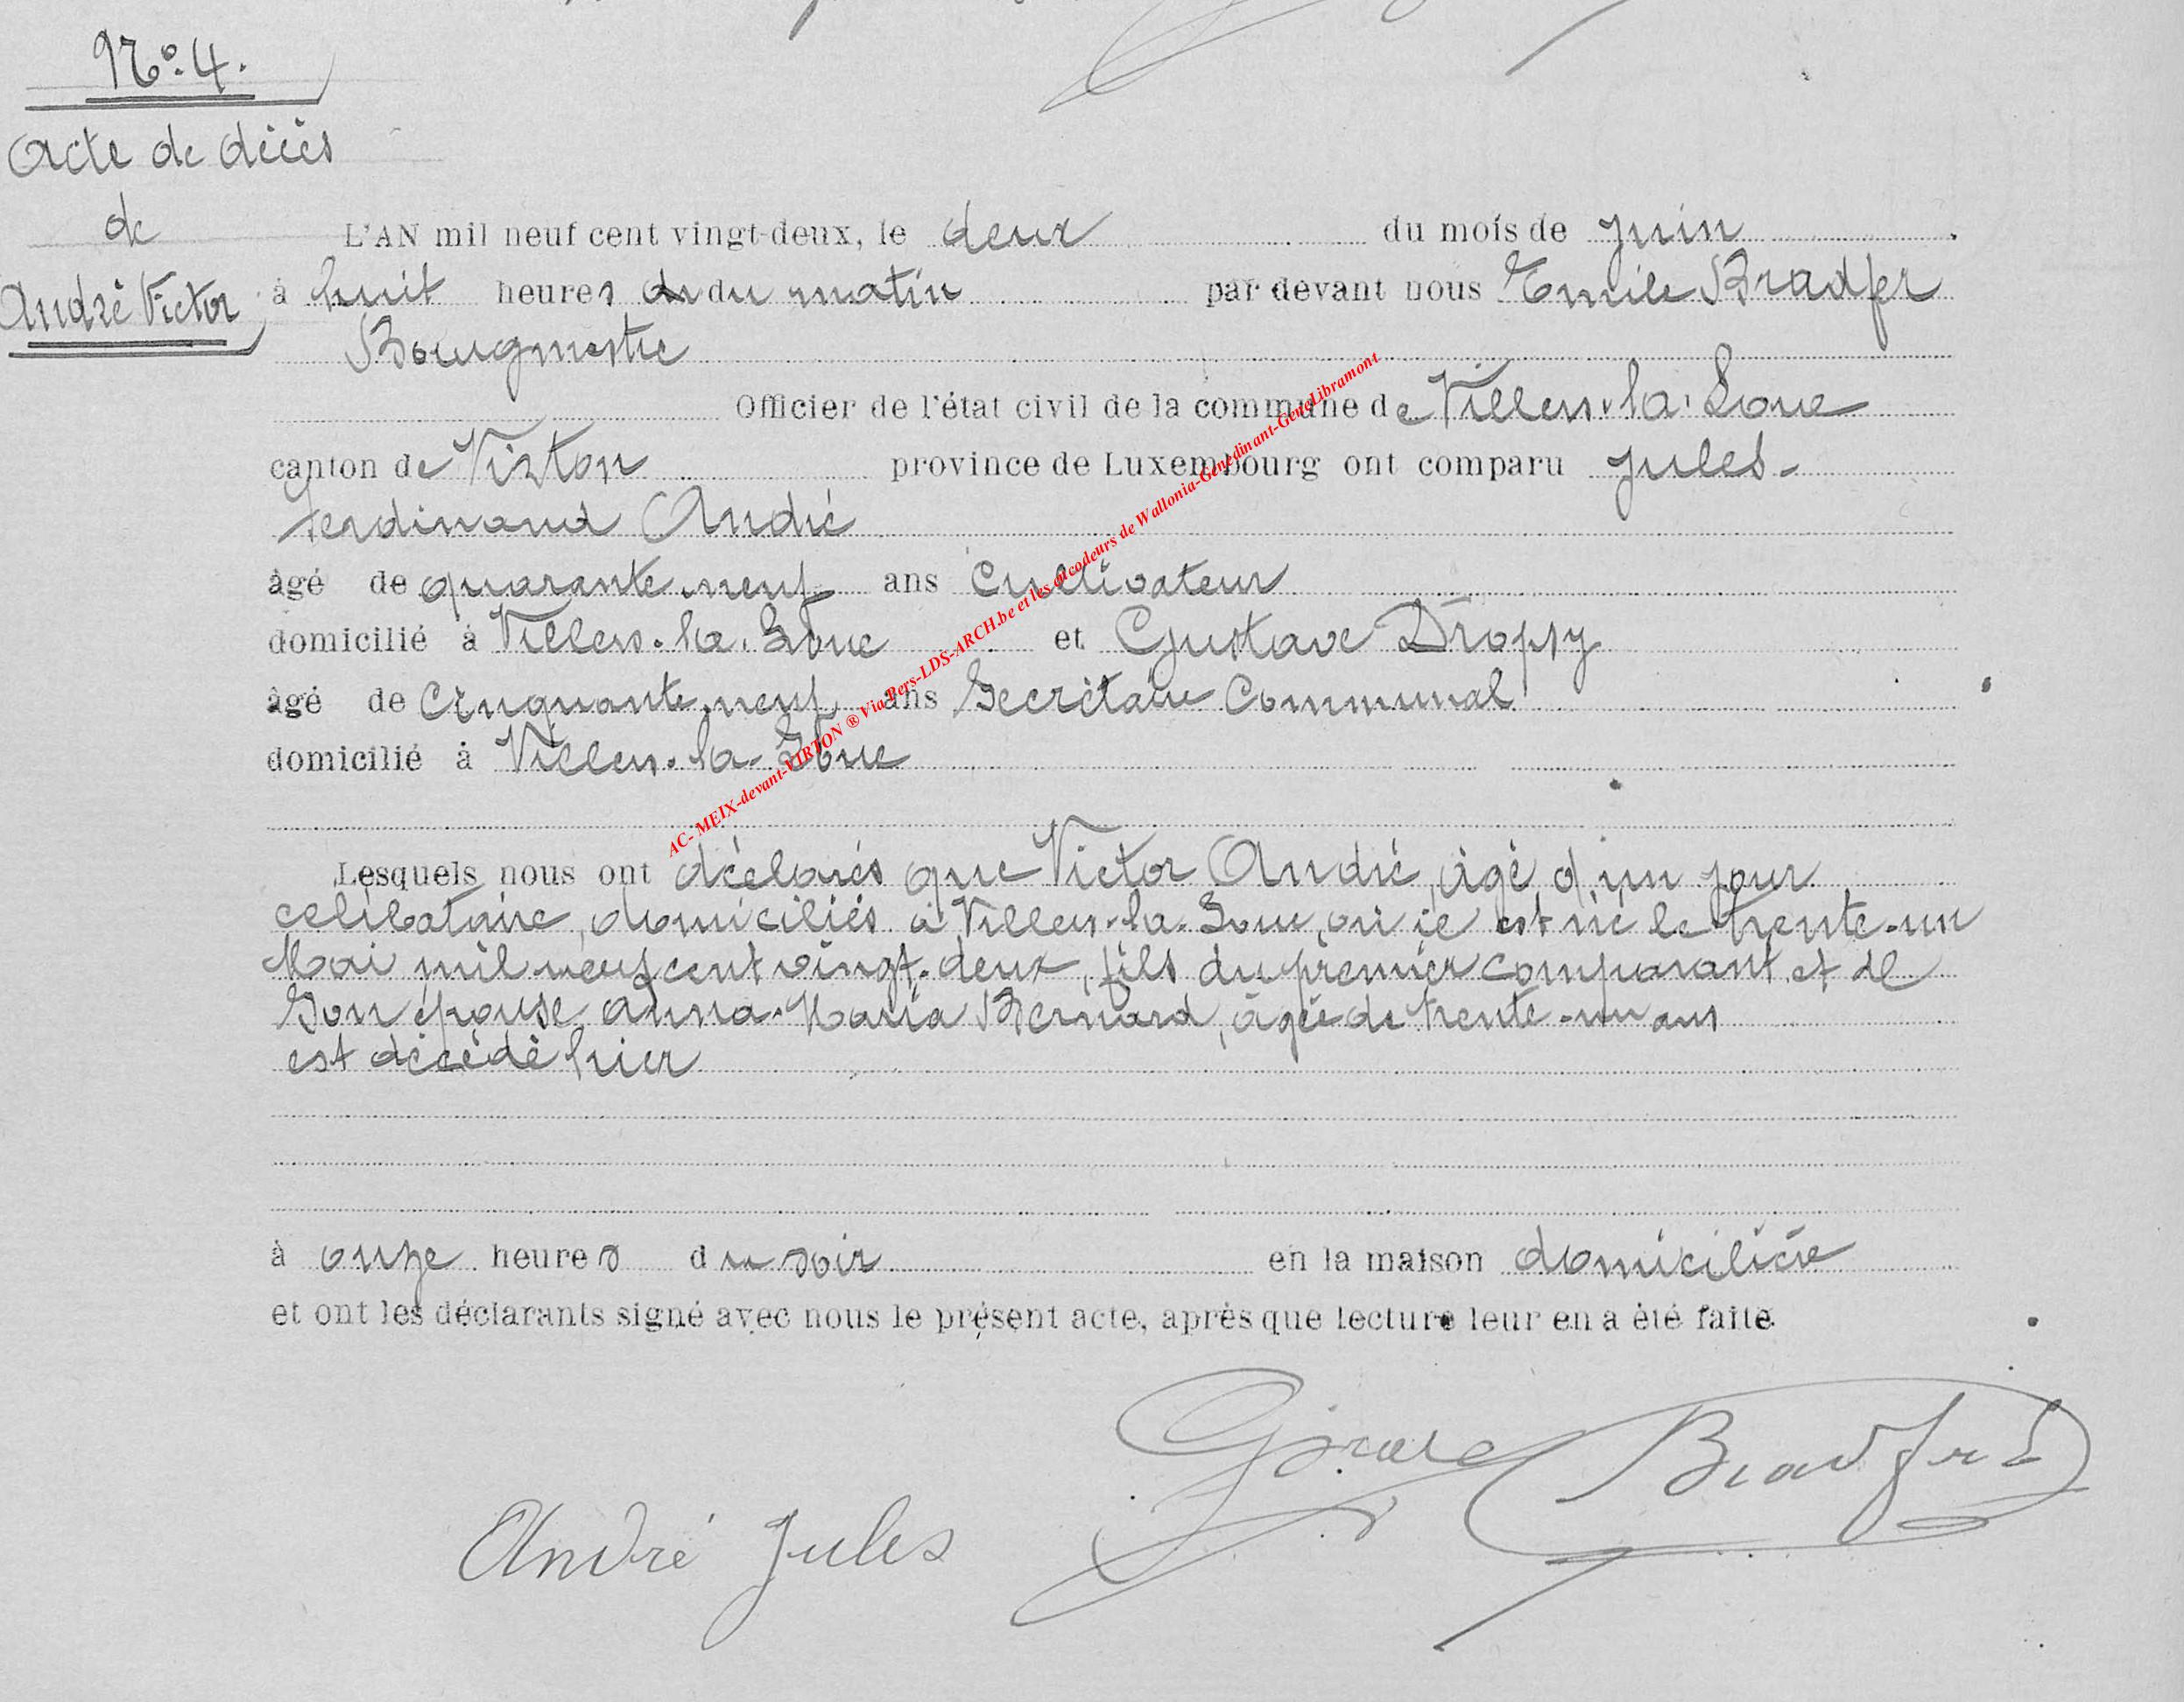 No. 4.
Acte de décès
de
André Victor
L'AN mil neuf cent vingt-deux, le deux du mois de juin
à huit heures du matin par devant nous Emile Bradfer
Bourgmestre
Officier de l'état civil de la commune de Villers-la-Loue
canton de Virton province de Luxembourg ont comparu Jules-
Ferdinand André
âgé de quarante-neuf ans Cultivateur
domicilié à Villers-la-Loue et Gustave Dropsy
âgé de Cinquante-neuf ans Secrétaire Communal
domicilié à Villers-la-Loue
Lesquels nous ont déclarés que Victor André, âgé d'un jour
celibataire, domiciliés à Villers-la-Loue, où il est né le trente-un
Mai mil neuf cent vingt-deux, fils du premier comparant et de
Son épouse Anna-Maria Bernard, âgée de trente-un ans
est décédé hier
à onze heures du soir en la maison domicilière
et ont les déclarants signé avec nous le présent acte, après que lecture leur en a été faite
André Jules
AC- MEIX-devant-VIRTON ® Via Pers-LDS-ARCH.be et les encodeurs de Wallonia-Genedinant-GeneLibramont